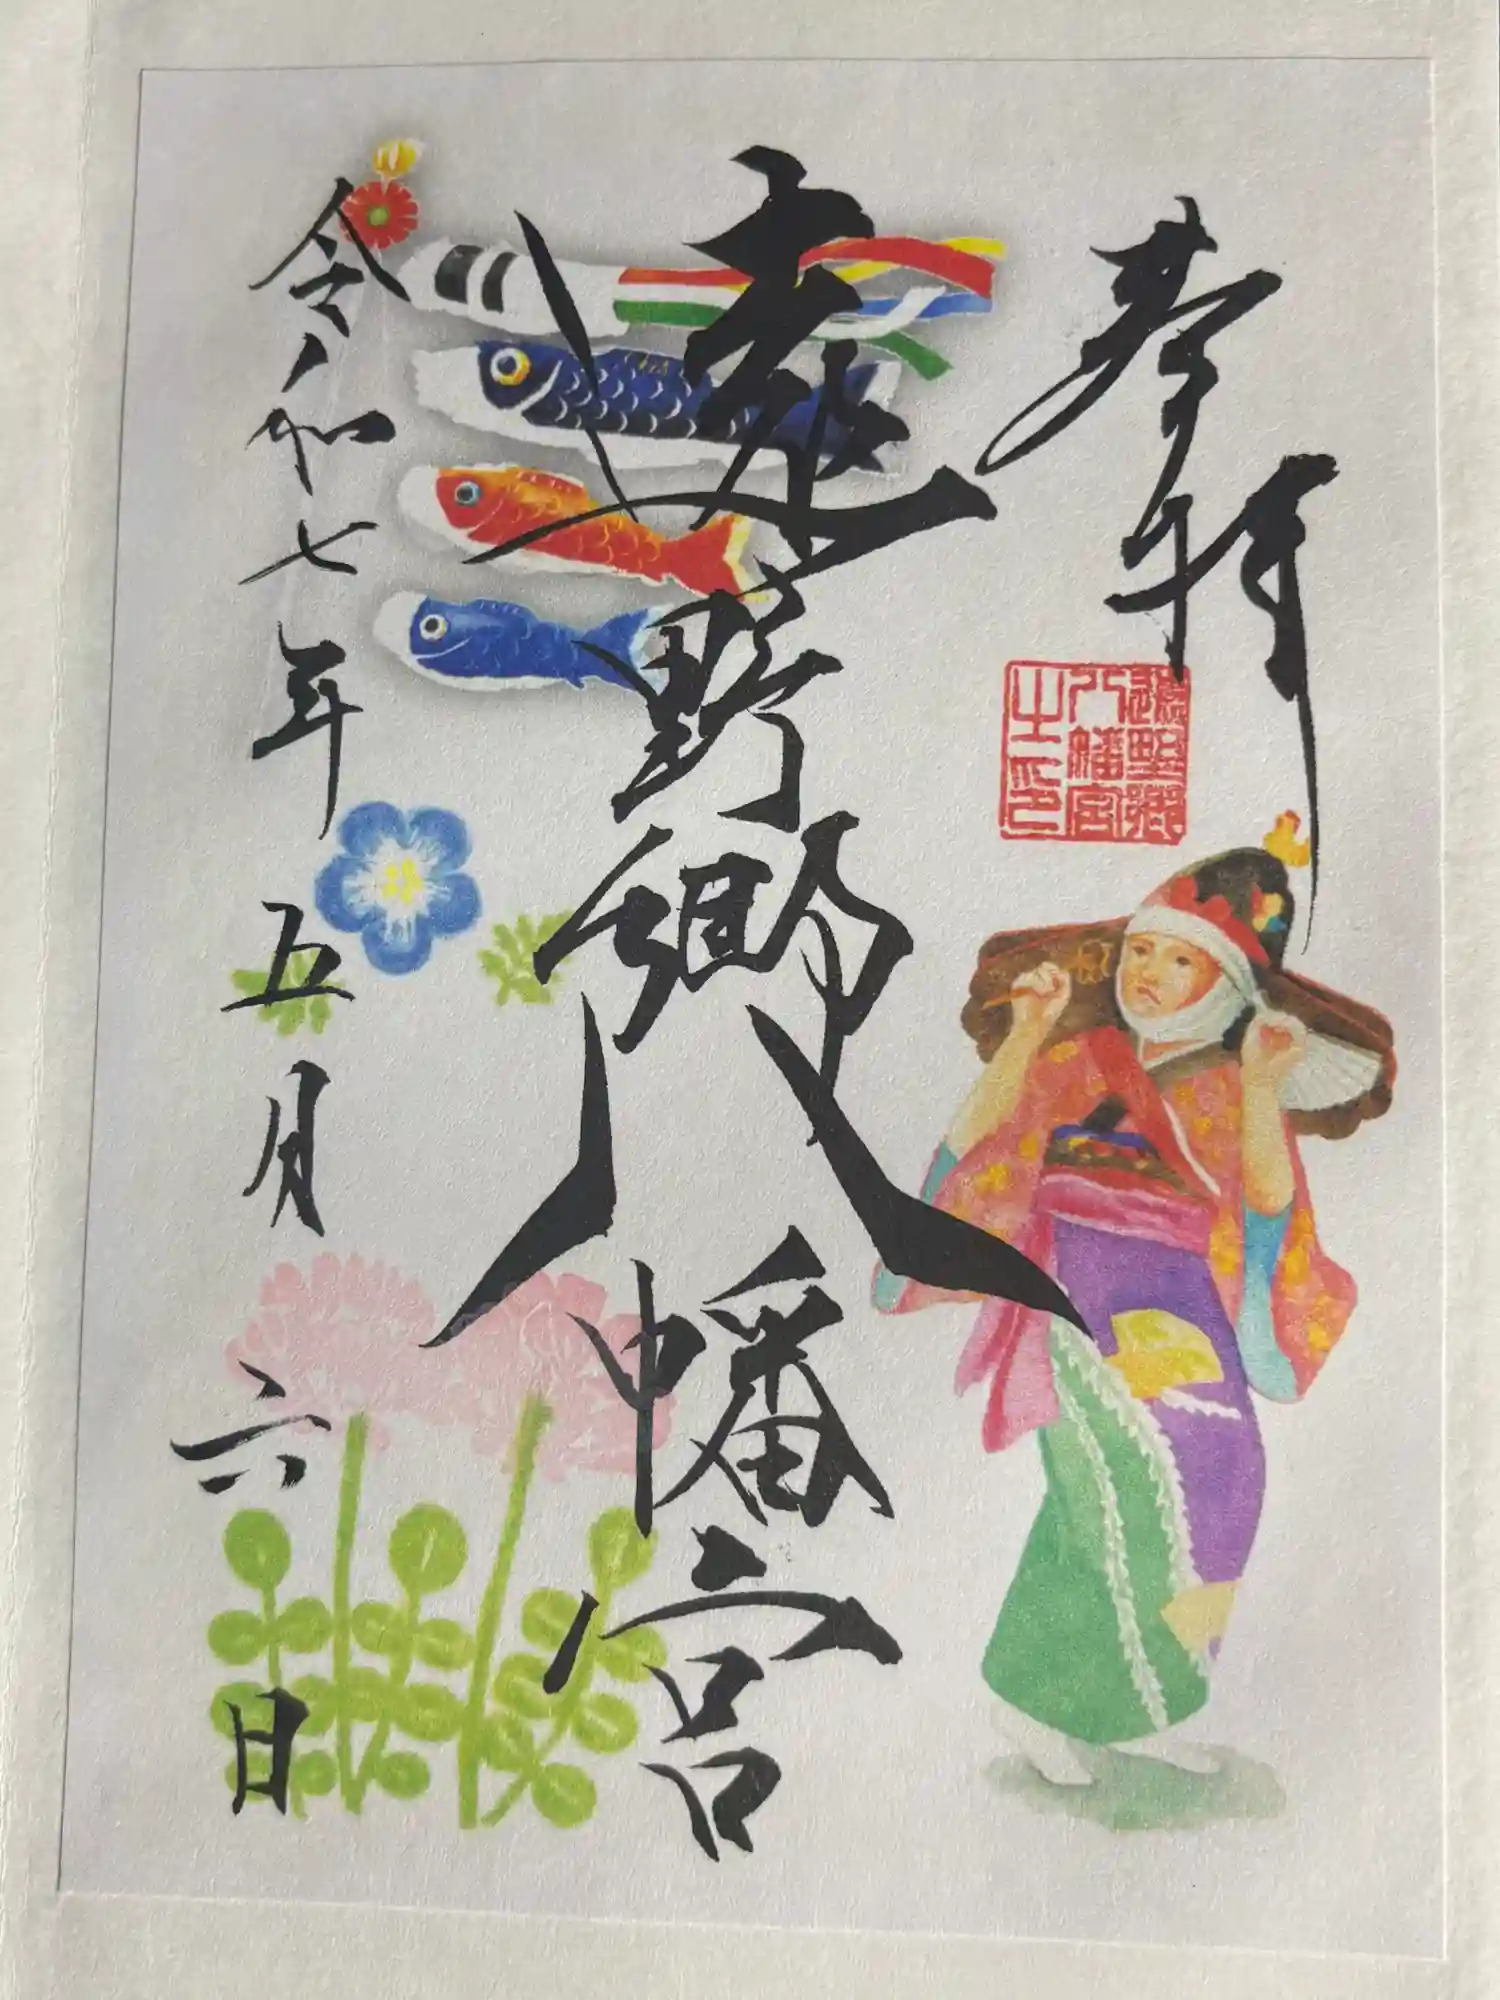 奉拝
遠野郷八幡宮
之印
八幡宮
遠野郷
令和七年五月六日